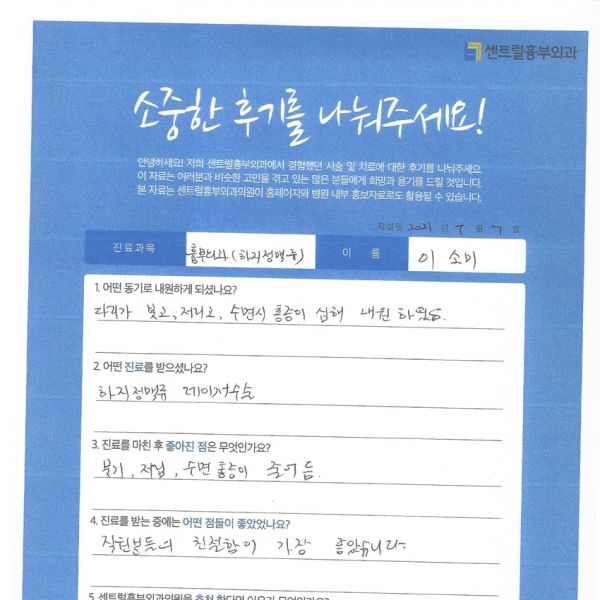 센트럴흉부외과
소중한 후기를 나눠주세요!
안녕하세요! 저희 센트럴흉부외과에서 경험했던 시술 및 치료에 대한 후기를 나눠주세요
이 자료는 여러분과 비슷한 고민을 겪고 있는 많은 분들에게 희망과 용기를 드릴 것입니다.
본 자료는 센트럴흉부외과의원이 홈페이지와 병원 내부 홍보자료로도 활용될 수 있습니다.
작성일 2021 년 7 월 7 일
진료과목 흉부외과 (하지정맥류) 이 름 이 소미
1. 어떤 동기로 내원하게 되셨나요?
다리가 붓고, 저리고, 수면시 통증이 심해 내원 하였음.
2. 어떤 진료를 받으셨나요?
하지정맥류 레이저수술
3. 진료를 마친 후 좋아진 점은 무엇인가요?
붓기, 저림, 수면 통증이 줄어듬.
4. 진료를 받는 중에는 어떤 점들이 좋았었나요?
직원분들의 친절함이 가장 좋았습니다.
5. 센트럴흉부외과의원을 추천 한다면 이유가 무엇인가요?